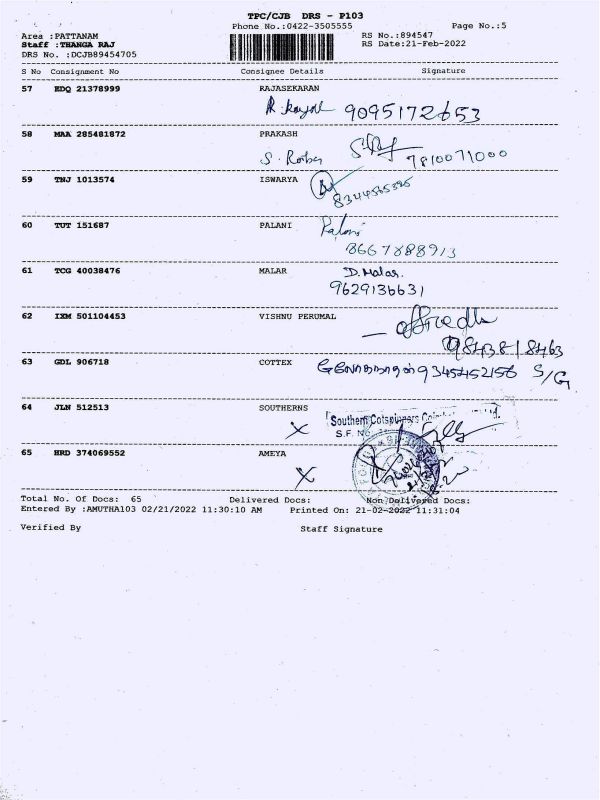 TPC/CJB DRS - P103
Phone No.:0422-3505555 Page No.:5
Area :PATTANAM RS No.:894547
Staff :THANGA RAJ RS Date:21-Feb-2022
DRS No. :DCJB89454705
S No Consignment No Consignee Details Signature
57 EDQ 21378999 RAJASEKARAN
9095172653
58 MAA 285481872 PRAKASH
S. 7810071000
59 TNJ 1013574 ISWARYA
60 TUT 151687 PALANI
Palani
8667888913
61 TCG 40038476 MALAR
D. Malar.
9629136631
62 IXM 501104453 VISHNU PERUMAL
98438 18463
63 GDL 906718 COTTEX
9345452156 S/G
64 JLN 512513 SOUTHERNS
X Southern Cotspinners
S.F. No.
65 HRD 374069552 AMEYA
X
Total No. Of Docs: 65 Delivered Docs: Non Delivered Docs:
Entered By :AMUTHA103 02/21/2022 11:30:10 AM Printed On: 21-02-2022 11:31:04
Verified By Staff Signature